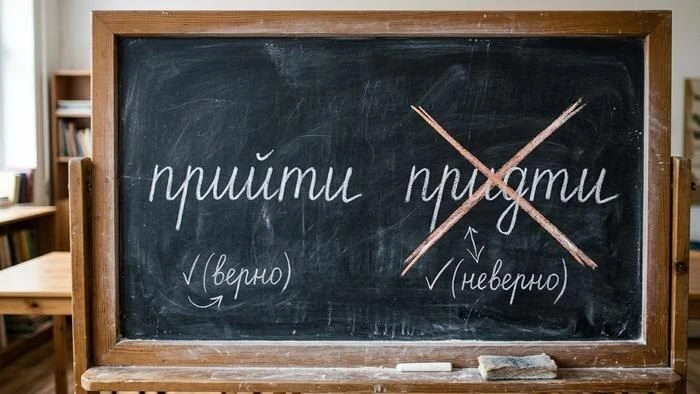 прийти придти
✓(верно) ✓(неверно)